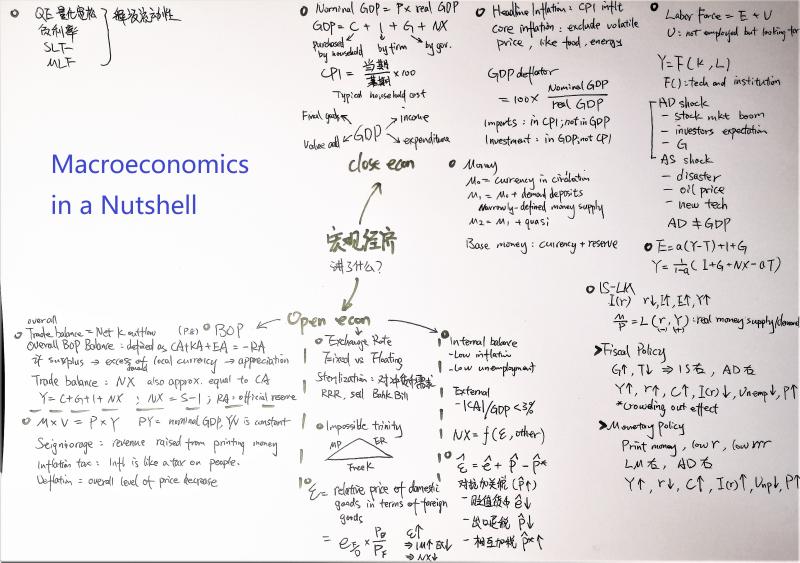 QE 量化宽松
负利率
SLF
MLF
释放流动性
Macroeconomics
in a Nutshell
Nominal GDP = P × real GDP
GDP = C + I + G + NX
purchased by household by firm by gov.
CPI = 当期/基期 × 100
Typical household cost
Final goods income
Value add GDP expenditure
close econ
宏观经济
讲了什么?
Open econ
Headline Inflation: CPI inflt
core inflation: exclude volatile
price, like food, energy
GDP deflator
= 100 × Nominal GDP / real GDP
Imports: in CPI; not in GDP
Investment: in GDP; not CPI
Money
M₀ = currency in circulation
M₁ = M₀ + demand deposits
Narrowly-defined money supply
M₂ = M₁ + quasi
Base money: currency + reserve
Labor Force = E + U
U: not employed but looking for
Y = F(K, L)
F(): tech and institution
AD shock
- stock mkt boom
- investors expectation
- G
AS shock
- disaster
- oil price
- new tech
AD ≠ GDP
E = a(Y-T)+I+G
Y = 1/1-a (I+G+NX-aT)
IS-LM
I(r) r↓, I↑, E↑, Y↑
M/P = L(r, Y): real money supply/demand
Fiscal Policy
G↑, T↓ ⇒ IS右, AD右
Y↑, r↑, C↑, I(r)↓, Unemp↓, P↑
*Crowding out effect
Monetary Policy
Print money, low r, low rrr
LM右, AD右
Y↑, r↓, C↑, I(r)↑, Unp↓, P↑
overall
Trade balance = Net K outflow (P.8) BOP
Overall BOP Balance: defined as CA+KA+EA = -RA
if surplus → excess demand of local currency → appreciation
Trade balance: NX also approx. equal to CA
Y = C+G+I+NX; NX = S-I; RA: official reserve
M × V = P × Y PY = nominal GDP, V is constant
Seigniorage: revenue raised from printing money
Inflation tax: Infl is like a tax on people.
Deflation = overall level of price decrease
Exchange Rate
Fixed vs Floating
Sterilization: 对冲货币需求
RRR, sell Bank Bill
Impossible trinity
MP ER
Free K
ε = relative price of domestic
goods in terms of foreign
goods
ε↑
⇒ IM↑ EX↓
⇒ NX↓
Internal balance
- Low inflation
- Low unemployment
External
- |CA|/GDP < 3%
NX = f(ε, other)
ε̂ = ê + P̂ - P̂*
对抗加关税 (P̂↑)
- 贬值货币 ê↓
- 出口退税 P̂↓
- 相互加税 P̂*↑